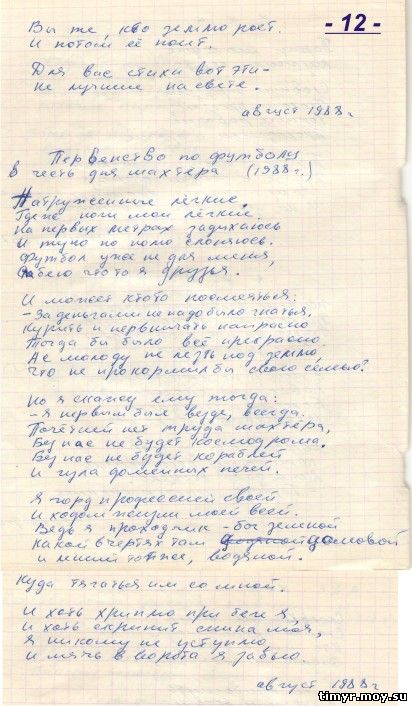 - 12 -
Вы же, кто землю роет.
И потом её поит.
Для вас стихи вот эти-
не лучшие на свете.
август 1988г
Первенство по футболу
в честь дня шахтера (1988г.)
Натруженные лёгкие,
Где же ноги мои лёгкие.
На первых метрах задыхаюсь
И тупо по полю слоняюсь.
Футбол уже не для меня,
Слабею что то я друзья.
И может ктото посмеяться:
- За деньгами не надо было гнаться,
Курить и нервничать напрасно
Тогда бы было всё прекрасно.
А с молоду не лезть под землю,
Что не прокормил бы свою семью?
Но я скажу ему тогда:
- Я первым был везде, всегда.
Почётней нет труда шахтёра,
Без нас не будет космодрома.
Без нас не будет кораблей
И гула доменных печей.
Я горд профессией своей
И ходом жизни моей всей.
Ведь я проходчик - бог земной
Какой в чертях там домовой
и леший тожее, водяной.
Куда тягаться им со мной.
И хоть хриплю при беге я,
И хоть скрипит спина моя,
Я никому не уступлю,
И мячь в ворота я забью.
август 1988г
timyr.moy.su